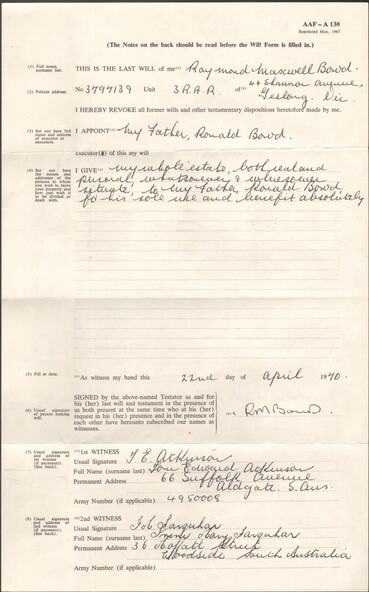 AAF – A 130
Reprinted May, 1967
(The Notes on the back should be read before the Will Form is filled in.)
(1) Full name, surname last.
THIS IS THE LAST WILL of me (1) Raymond Maxwell Bowd.
(2) Private address.
No 3797139 Unit 3 R.A.R. of (2) 44 Shannon Avenue,
Geelong. Vic
I HEREBY REVOKE all former wills and other testamentary dispositions heretofore made by me.
(3) Set out here full name and address of executor or executors.
I APPOINT (3) My Father, Ronald Bowd.
executor(s) of this my will
(4) Set out here the names and addresses of the persons to whom you wish to leave your property and how you wish it to be divided or dealt with.
I GIVE (4) my whole estate, both real and
personal, whatsoever & wheresoever
situate, to my Father, Ronald Bowd
for his sole use and benefit absolutely
(5) Fill in date.
(5) As witness my hand this 22nd day of April 1970.
(6) Usual signature of person making will.
SIGNED by the above-named Testator as and for
his (her) last will and testament in the presence of
us both present at the same time who at his (her)
request in his (her) presence and in the presence of
each other have hereunto subscribed our names as
witnesses.
(6) RM Bowd.
(7) Usual signature and address of 1st witness (if necessary). (See back).
(7) 1st WITNESS
Usual Signature T E. Atkinson
Full Name (surname last) Tom Edward Atkinson
Permanent Address 66 Suffolk Avenue
Aldgate. S. Aus.
Army Number (if applicable) 4950008
(8) Usual signature and address of 2nd witness (if necessary). (See back.)
(8) 2nd WITNESS
Usual Signature Farquhar
Full Name (surname last) Mary Farquhar
Permanent Address 36 Moffatt Street
Woodside South Australia
Army Number (if applicable)